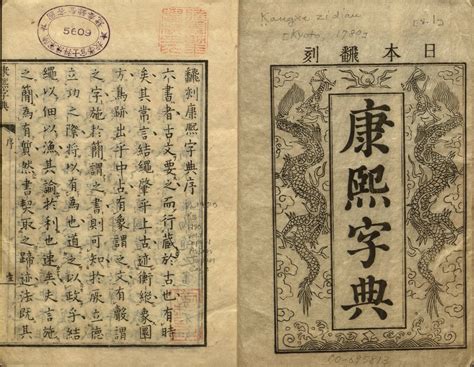 日本翻刻
康熙字典
翻刻康熙字典序
六書者古文要之而行藏於古也有時
矣其常言結繩肇乎上古迹衡縱象圍
方鳥跡出乎中古有像謂之文有數謂
之字施於簡謂之書則可知於厥立德
立功之際將以有為也道之以政乎結
繩以佃以漁其諭於利也速矣史言施
之簡為有然書契取之歸迹法既其
康熙字典
序
5609
Kangxi zidian
(Kyoto, 1780)